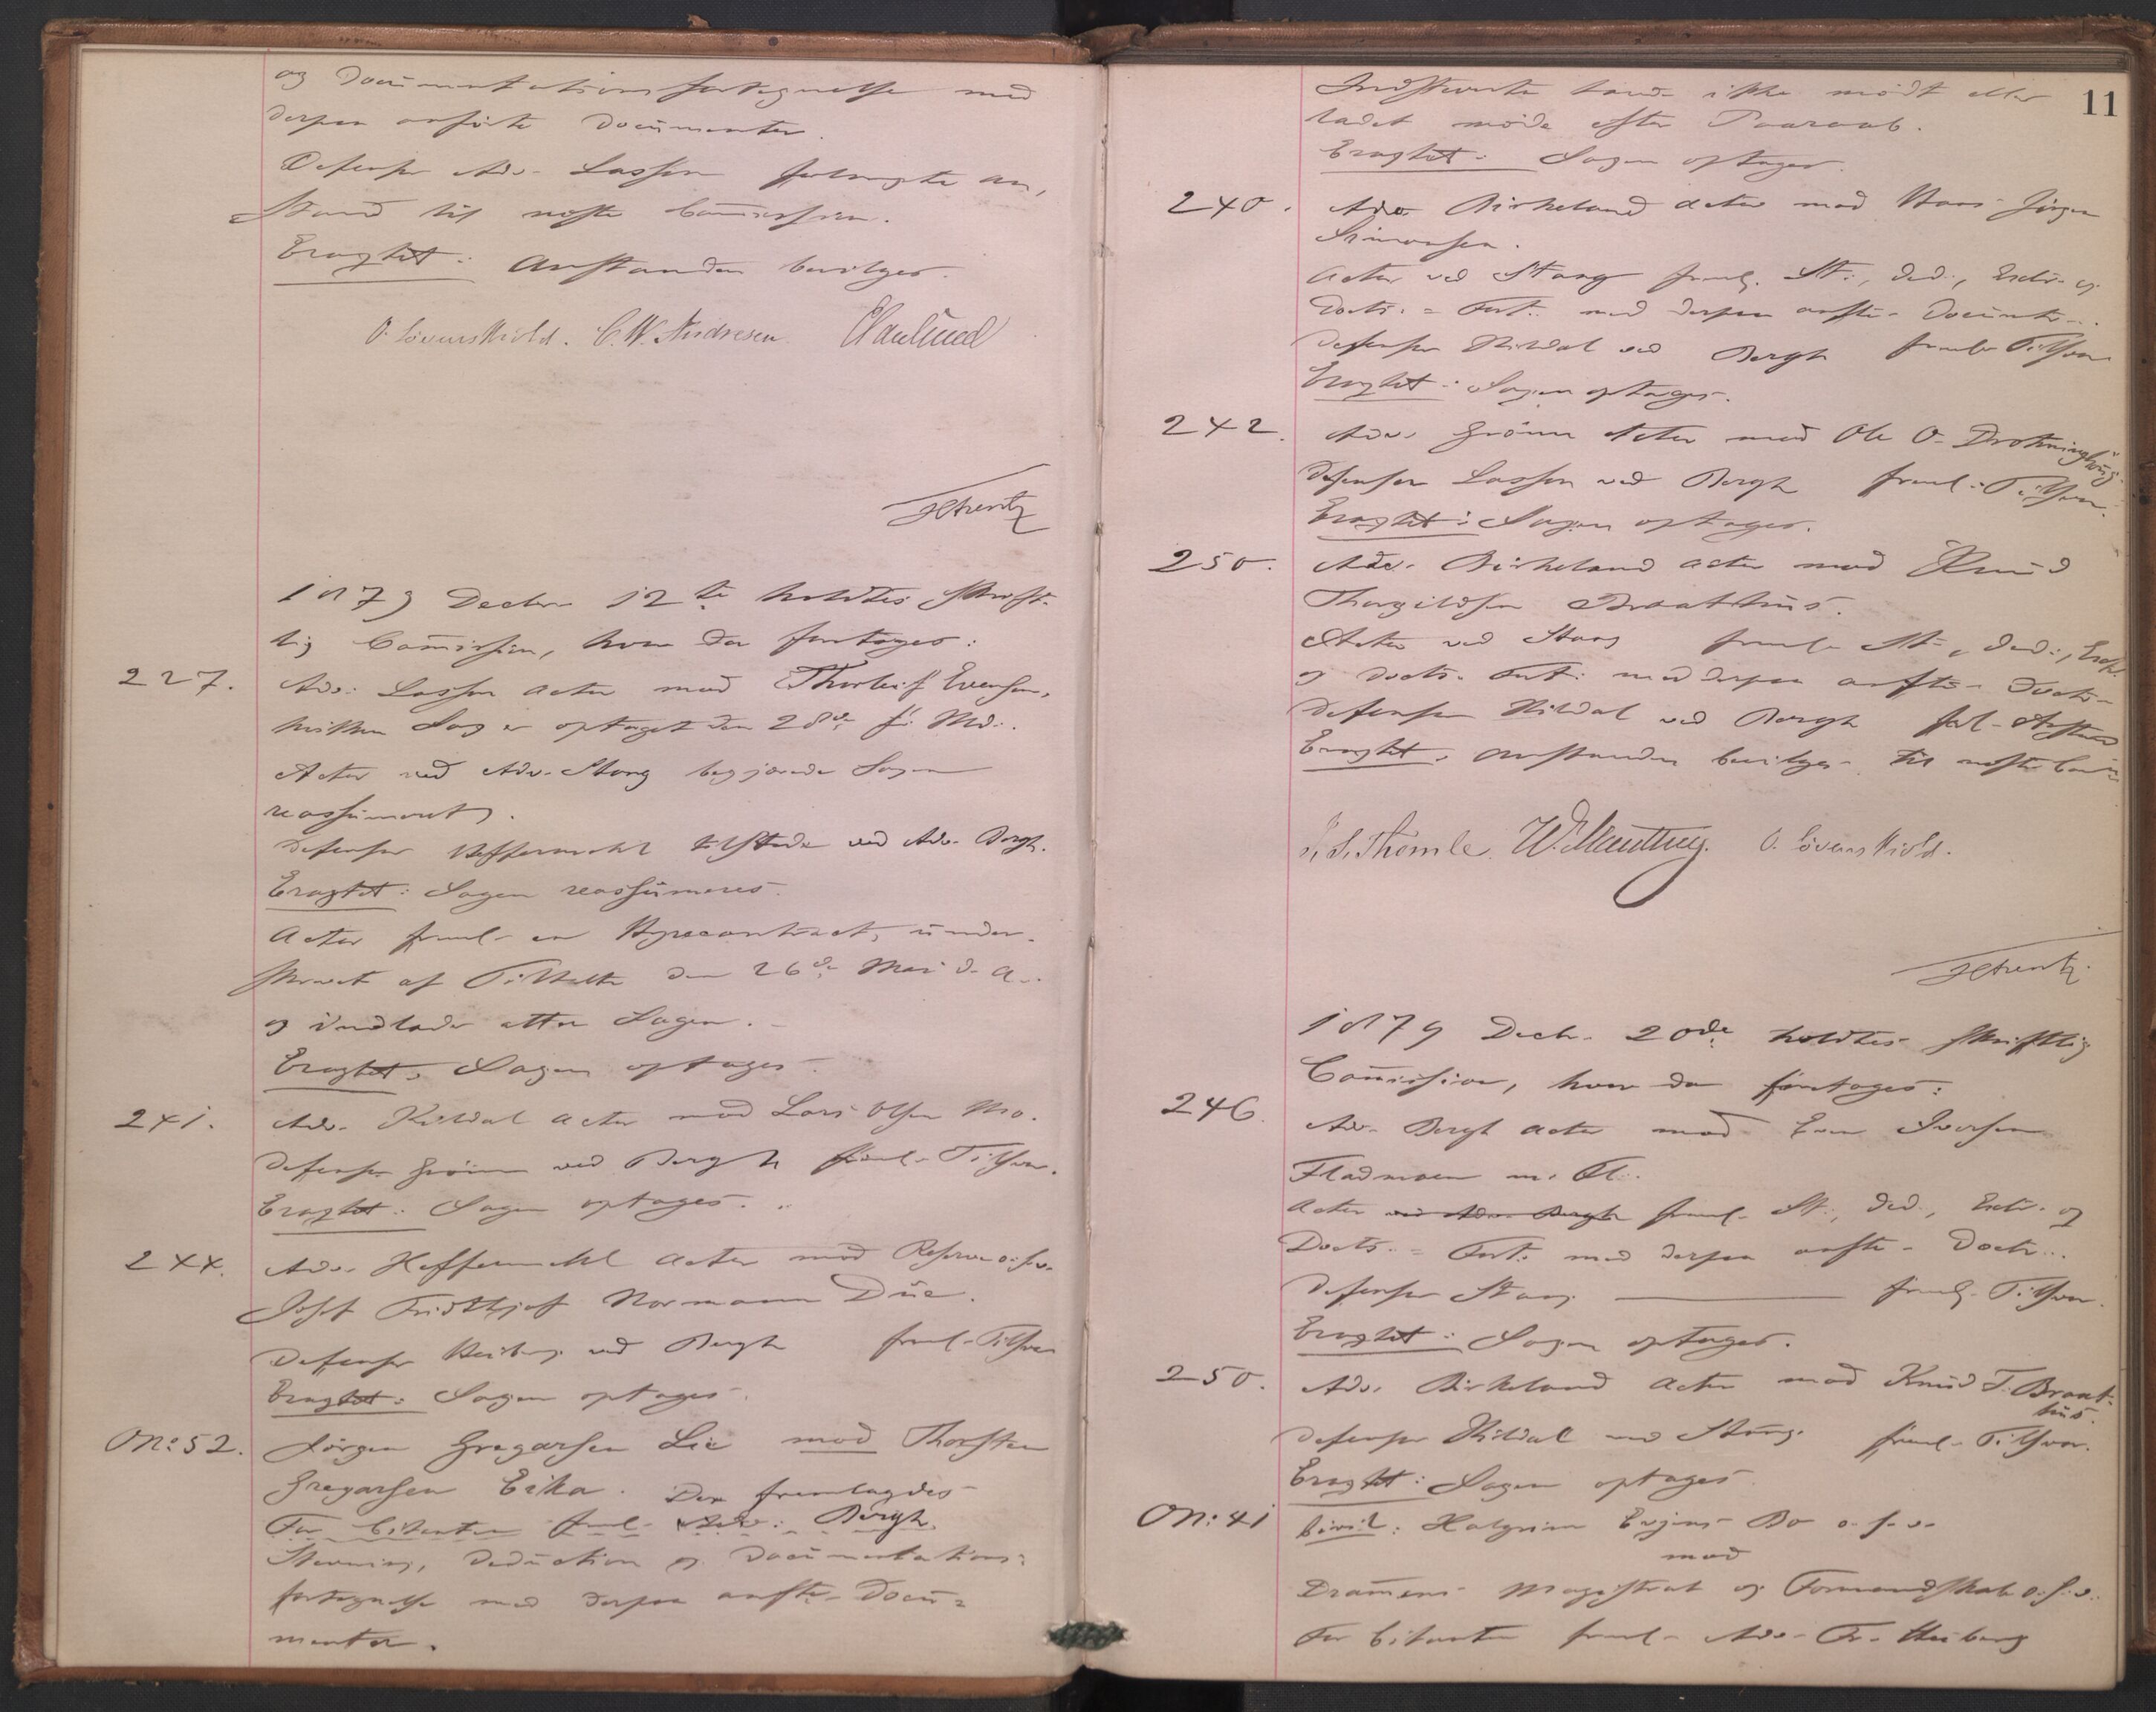 og Documentationsfortegnelse med
derpaa anførte Documenter.
Defensor Adv. Lassen forlangte An-
stand til næste Commission.
Eragtet: Anstanden bevilges.
O. Løvenskiold. C. W. Andresen.
1879 Decbr 12te holdtes skrift-
lig Commission, hvor da foretoges:
227. Adv: Lassen Actor mod Thorleif Evensen,
hvilken Sag er optaget den 28de f. Md.
Actor ved Adv. Stang begjærede Sagen
reassumeret.
Defensor Heffermehl tilstede ved Adv. Bergh.
Eragtet: Sagen reassumeres.
Actor freml. en Hyrecontract, under-
skrevet af Tiltalte den 26de Mai d. A.
og indlader atter Sagen.
Eragtet: Sagen optages.
241. Adv. Kildal Actor mod Lars Olsen Mo.
Defensor Grönn ved Bergh freml. Tilsvar.
Eragtet: Sagen optages.
244. Adv. Heffermehl Actor mod Reserve o. s. v.
Josef Fridthjof Normann Düe.
Defensor Heiberg ved Bergh freml. Tilsvar
Eragtet: Sagen optages.
On: 52. Jörgen Gregarsen Lie mod Thorsten
Gregarsen Eika. Der fremlagdes
For Citanten freml. Adv: Bergh.
Stevning, Deduction og Documentations-
fortegnelse med derpaa anførte Docu-
menter.
11
Indstevnte havde ikke mödt eller
ladet möde efter Paaraab.
Eragtet: Sagen optages.
240. Adv. Birkeland Actor mod Hans Jörgen
Simonsen.
Actor ved Stang freml. St., Ded., Extr. og
Docts. = Fort. med derpaa anförte Documtr.
Defensor Kildal ved Bergh freml. Tilsvar
Eragtet: Sagen optages.
242. Adv. Grönn Actor mod Ole O. Drotninghoug.
Defensor Lassen ved Bergh freml: Tilsvar.
Eragtet: Sagen optages.
250. Adv. Birkeland Actor mod Knud
Thorgildsen Braathus.
Actor ved Stang freml. St., Ded., Extr.
og Docts. Fort. med derpaa anförte Doctr.
Defensor Kildal ved Bergh forl. Anstand
Eragtet: Anstanden bevilges til næste Com.
J. S. Thomle. O. Løvenskiold.
1879 Decbr. 20de holdtes skriftlig
Commission, hvor da foretoges:
246. Adv. Bergh Actor mod Even Iversen
Fladmoen m. Fl.
Actor ved Adv. Bergh freml. St., Ded., Extr. og
Docts. = Fort. med derpaa anförte Doctr.
Defensor Stang ——— freml. Tilsvar.
Eragtet: Sagen optages.
250. Adv. Birkeland Actor mod Knud T. Braat-
hus.
Defensor Kildal ved Stang freml. Tilsvar.
Eragtet: Sagen optages.
On: 41 Civil: Halgrim Evjens Bo o. s. v.
mod
Dramens Magistrat og Formandskab o. s. v.
For Citanten freml. Adv. Fr. Heiberg